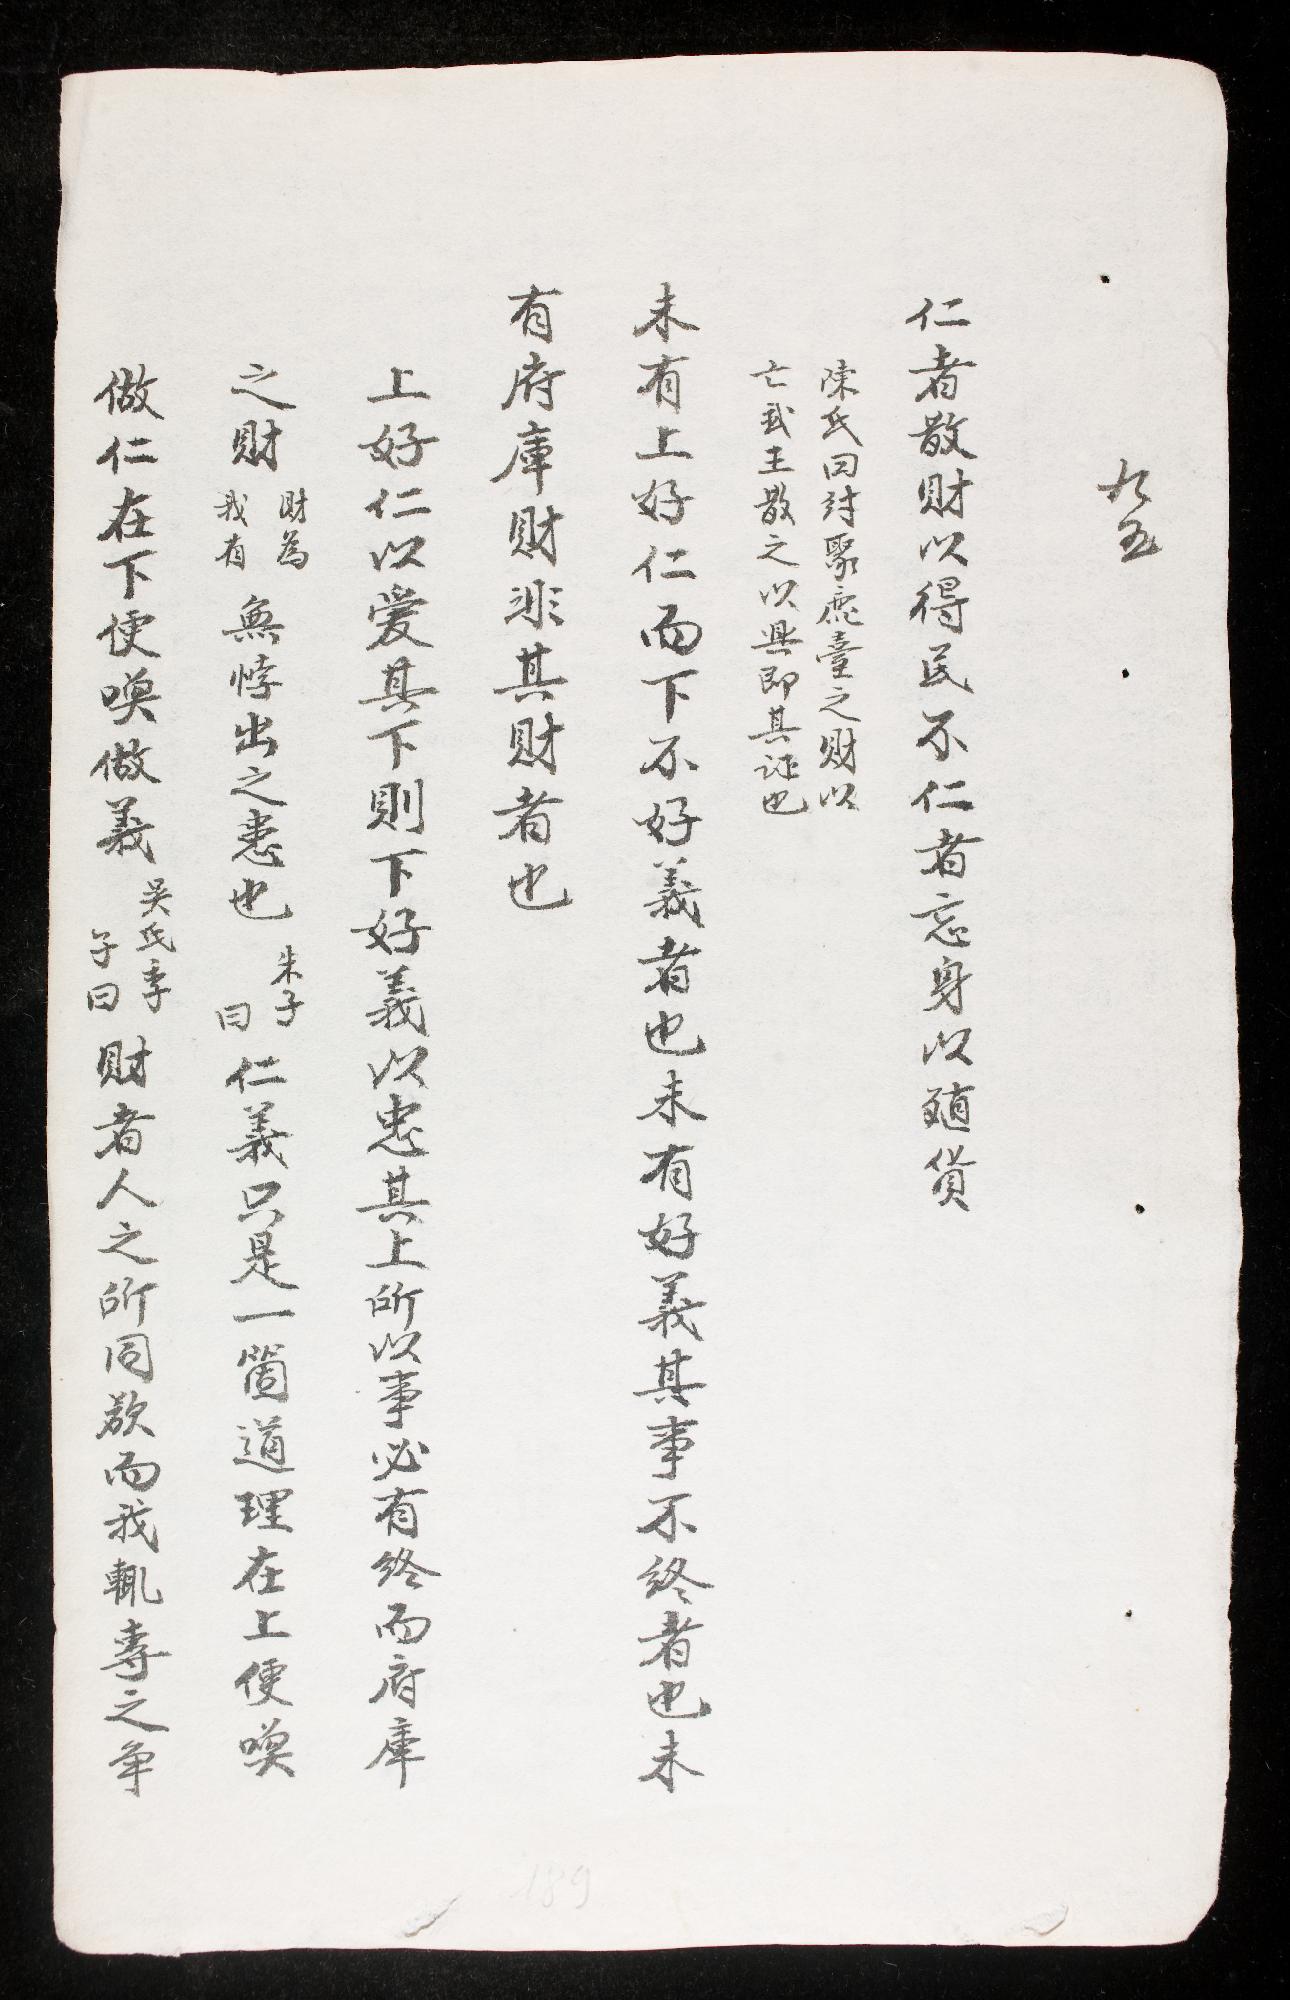 九五
仁者散財以得民不仁者忘身以殖貨
陳氏曰紂聚鹿臺之財以
亡武王散之以興即其証也
未有上好仁而下不好義者也未有好義其事不終者也未
有府庫財非其財者也
上好仁以愛其下則下好義以忠其上所以事必有終而府庫
之財財為我有無悖出之患也朱子曰仁義只是一箇道理在上便喚
做仁在下便喚做義吳氏季子曰財者人之所同欲而我輒專之争
189